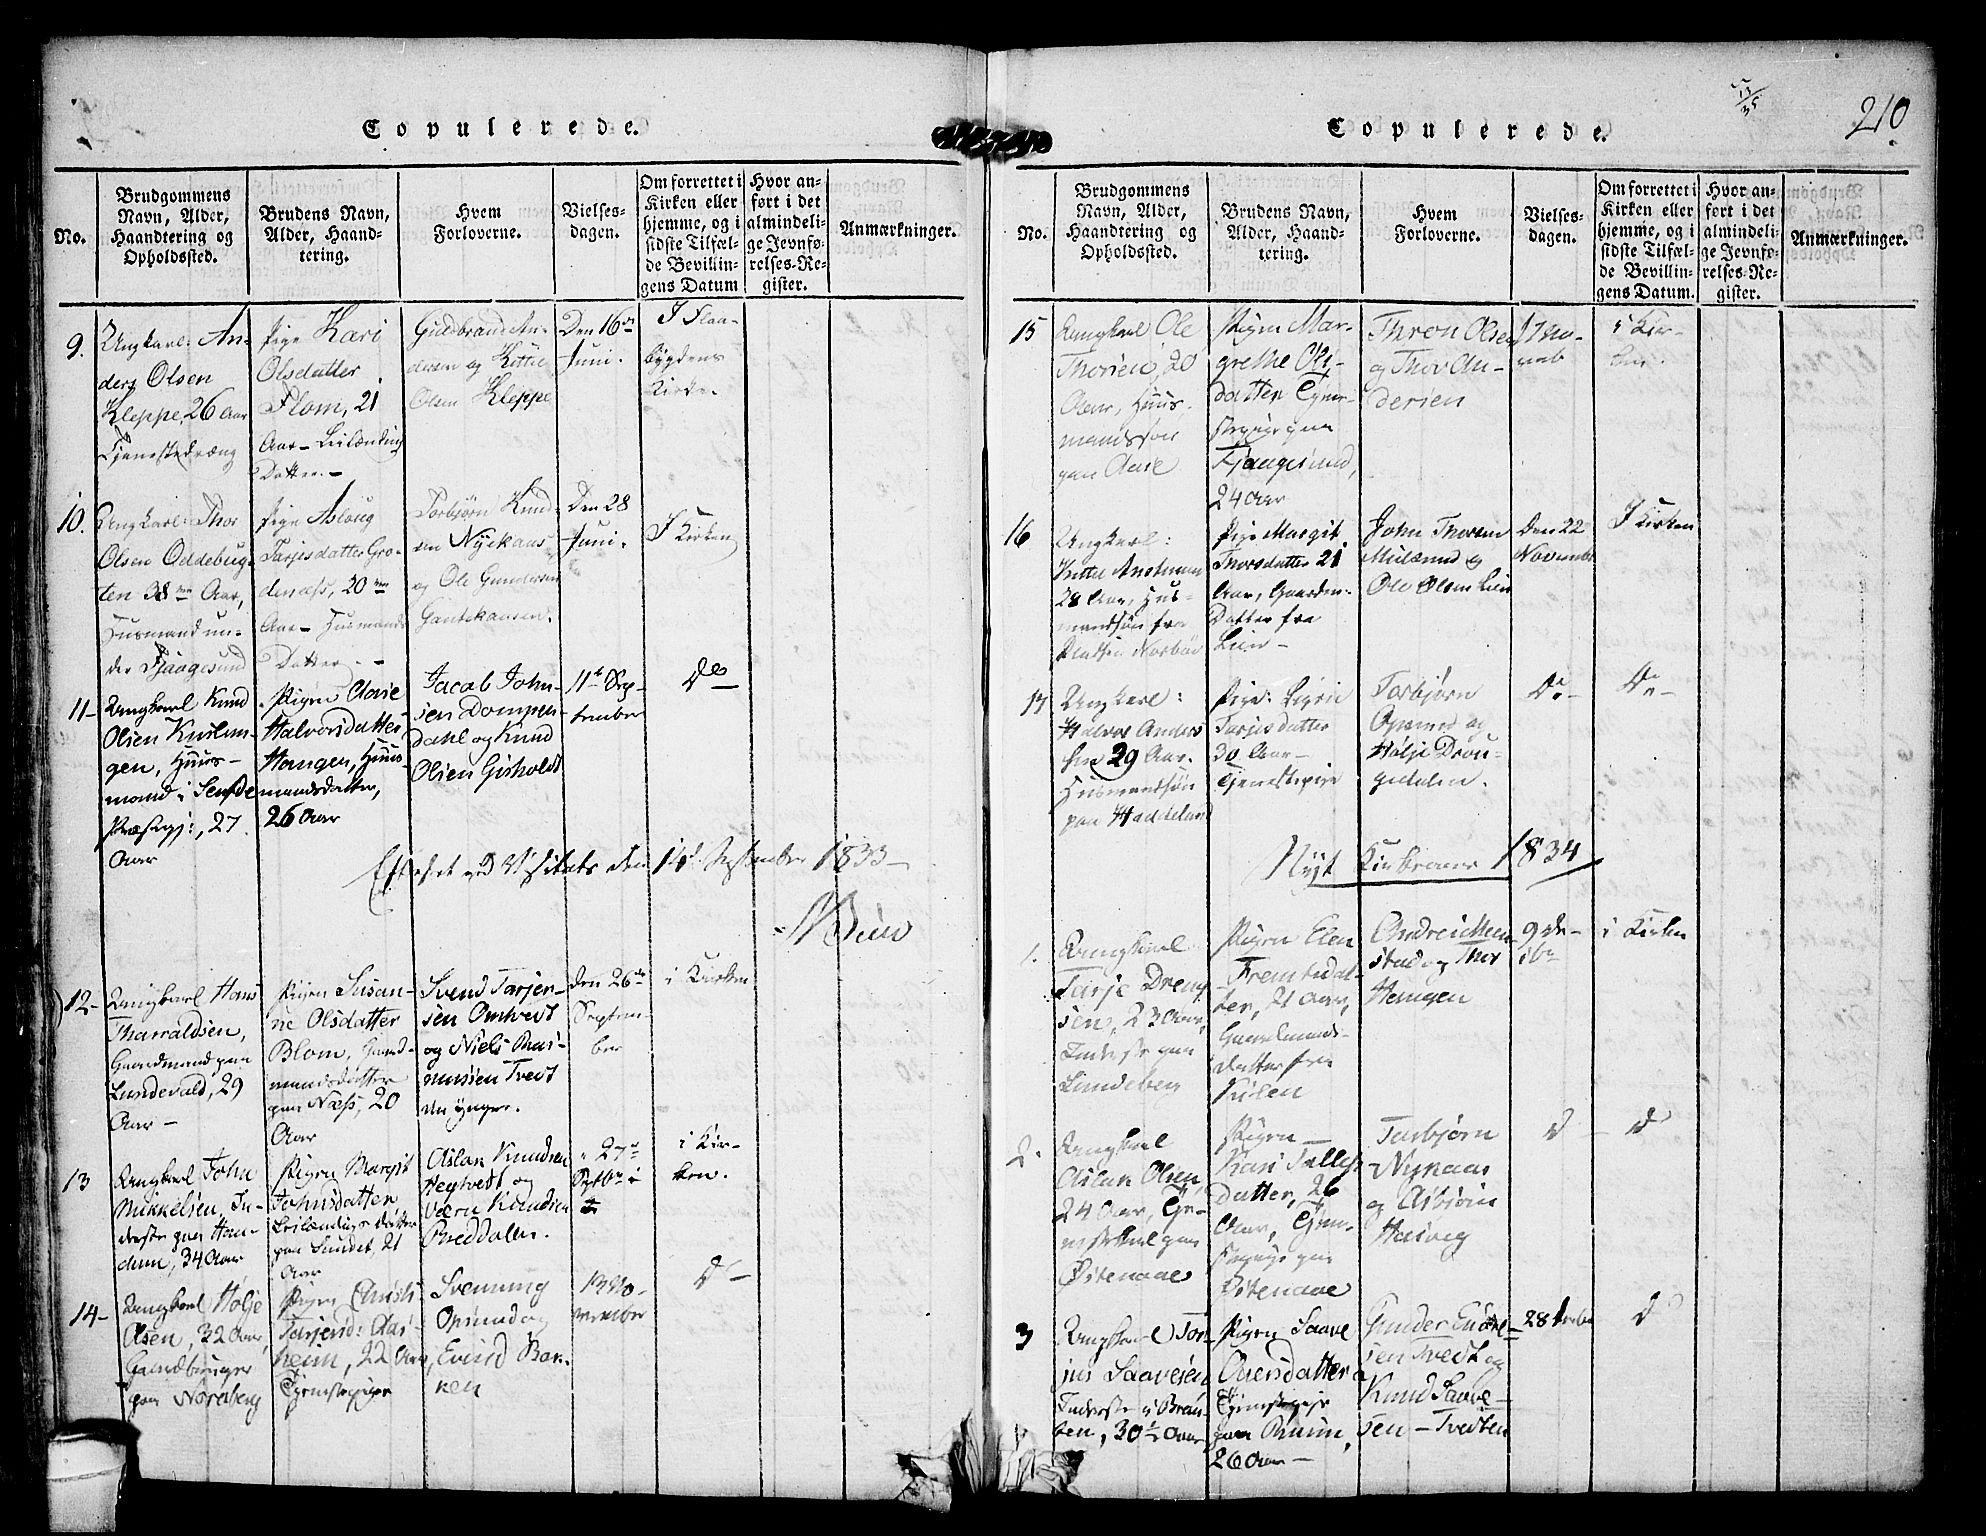 Copulerede.
No.
Brudgommens
Navn, Alder,
Haandtering og
Opholdssted.
Brudens Navn,
Alder, Haand-
tering.
Hvem
Forloverne.
Vielses-
dagen.
Om forrettet i
Kirken eller
hjemme, og i
sidste Tilfæl-
de Bevillin-
gens Datum
Hvor an-
ført i det
almindeli-
ge Jevnfø-
relses-Re-
gister.
Anmærkninger.
9.
Ungkarl: An-
ders Olsen
Kleppe, 26 Aar
Tjenestedræng
Pige Kari
Olsdatter
Flom, 21
Aar – Leilænding
Datter. –
Guldbrand An-
dersen og Kittil
Olsen Kleppe
Den 16de
Juni.
I Flaa-
bygdens
Kirke.
10.
Ungkarl: Thor
Olsen Oddebug-
ten 38 Aar,
Husmand un-
der Fjaagesund
Pige Aslaug
Tarjesdatter Gro-
denæss, 30
Aar – Husmands
Datter. –
Torbjørn Knud
sen Nykaas
og Ole Gundersen
Gautekaasen.
Den 28
Juni.
I Kirken
11–
Ungkarl Knud
Olsen
gen, Huus-
mand i Seufde
Præstegj:, 27
Aar
Pigen Aase
Halvorsdatter
Haugen, Huus-
mandsdatter,
26 Aar
Jacob John-
sen Dompen-
dahl og Knud
Olsen Gisholdt
11te Sep-
tember
Do
Efterset ved Visitats den 14de September 1833 –
12–
Ungkarl Hans
Tharraldsen,
Gaardmand paa
Lundevald, 29
Aar –
Pigen Susan-
ne Olsdatter
Blom, Gaard-
mandsdatter
paa Næss, 20
Aar
Svend Tarjer-
sen Omtvedt
og Niels Ras-
mussen Tvedt
den yngre.
den 26de
Septem-
ber
i Kirken
13
Ungkarl John
Mikkelsen, In-
derste paa Hau-
dem, 34 Aar
Pigen Margit
Johnsdatter
Leilændings datter
paa Sundet, 21
Aar
Aslak Knudsen
Heytvedt og
Knudsen
Breddalen.
27
Septbr
i Kir-
ken.
14–
Ungkarl Holje
Olsen, 32 Aar,
Gaardbruger
paa Nordberg
Pigen Christi
Tarjesd: Aas-
heim, 22 Aar,
Tjenestepige
Svenung
Opsund og
Evind Bak-
ken
13 No-
vember
Do –
210
Copulerede.
No.
Brudgommens
Navn, Alder,
Haandtering og
Opholdssted.
Brudens Navn,
Alder, Haand-
tering.
Hvem
Forloverne.
Vielses-
dagen.
Om forrettet i
Kirken eller
hjemme, og i
sidste Tilfæl-
de Bevillin-
gens Datum.
Hvor an-
ført i det
almindeli-
ge Jevnfø-
relses-Re-
gister.
Anmærkninger.
15
Ungkarl Ole
Thorsen, 20
Aar, Huus-
mandssøn
paa Aase
Pigen Mar-
grethe Ols-
datter Tjene-
stepige paa
Fjaagesund,
24 Aar
Thron Olsen
og Thor An-
dersen
17 No-
vemb
i Kir-
ken.
16
Ungkarl:
Kittil
28 Aar, Hus-
mandssøn fra
Pladsen
Pige Margit
Thorsdatter 21
Aar, Gaardm.
Datter fra
Lien –
John Thorsen
og
Ole Olsen Lien
Den 22
November
I Kirken
17
Ungkarl:
Halvor Anders
sen 29 Aar.
Husmandsøn
paa Haddeland
Pige: Sigrie
Tarjesdatter
30 Aar –
Tjenestepige
Torbjørn
Opsund og
Holje Drou-
gedalen.
Do –
Do –
Nyt Kirkeaar 1834
1.
Ungkarl
Tarje Dreng-
sen, 23 Aar,
Inderste paa
Lundeberg
Pigen Elen
Fremtsdat-
ter, 21 Aar,
Gaardmands-
datter fra
Kilen
Andreis Hem-
stad og Thor
Haugen
9 De-
cbr
i Kirken
2.
Ungkarl
Aslak Olsen,
24 Aar, Tje-
nestekarl paa
Østenaae
Pigen
Kari Tallefs-
datter, 26
Aar, Tjene-
stepige paa
Østenaae
Torbjørn
Nykaas
og Asbjørn
Hasvig
Do –
Do
3
Ungkarl Tor-
jus Saavesen
Inderste i Braa-
ten, 30½ Aar
Pigen Saave
Olversdatter
Tjenestepige
paa Bruum,
26 Aar –
Gunder
sen Tvedt og
Knud Saave-
sen – Tvedten
28
Do